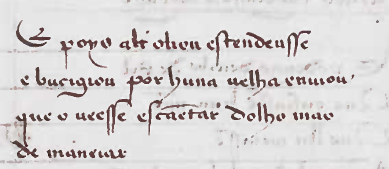 E poys alt oliou estendeusse
e buçigiou por huna uelha enuiou
que o ueesse escaentar dolho mao
de maneiar